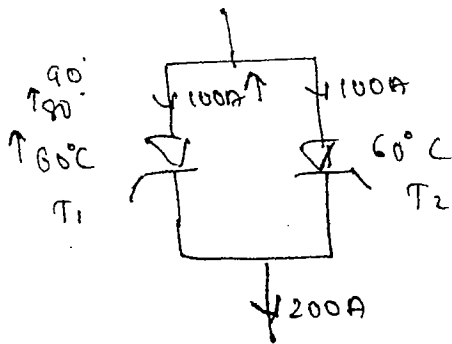 90°
↑80°
↑60°C
T1
100A↑
100A
60°C
T2
200A